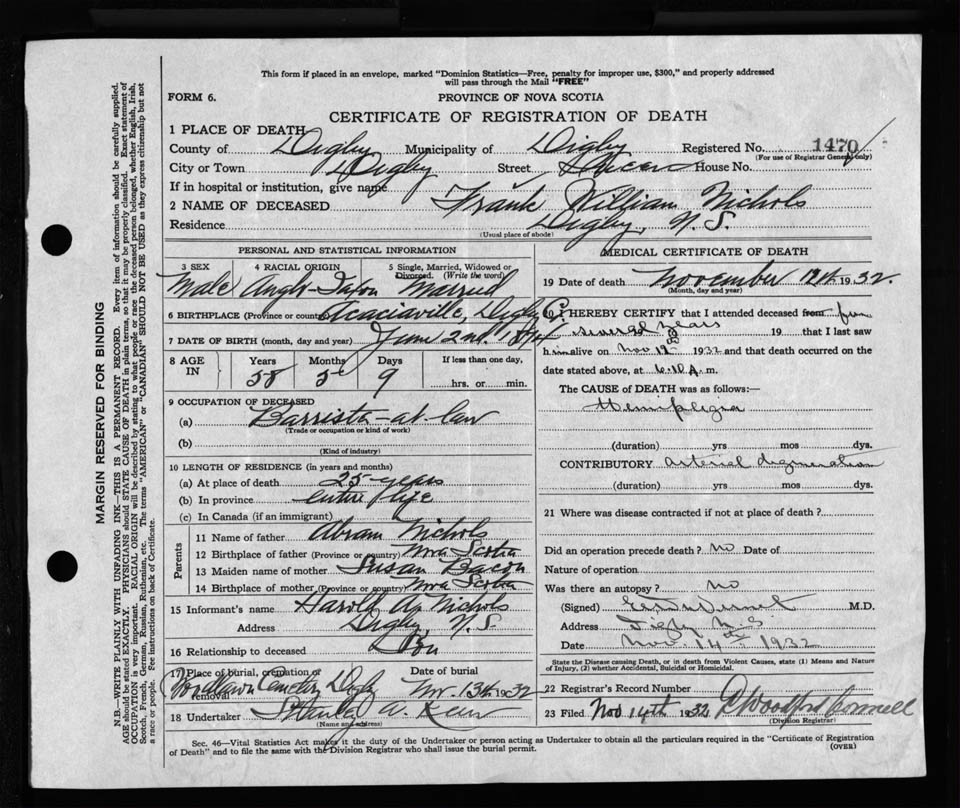 This form if placed in an envelope, marked "Dominion Statistics—Free, penalty for improper use, $300," and properly addressed
will pass through the Mail "FREE"
FORM 6.
PROVINCE OF NOVA SCOTIA
CERTIFICATE OF REGISTRATION OF DEATH
1 PLACE OF DEATH
County of Digby Municipality of Digby Registered No. 1470
(For use of Registrar General only)
City or Town Digby Street Queen House No.
If in hospital or institution, give name
2 NAME OF DECEASED Frank William Nichols
Residence Digby, N. S.
(Usual place of abode)
PERSONAL AND STATISTICAL INFORMATION
3 SEX 4 RACIAL ORIGIN 5 Single, Married, Widowed or Divorced. (Write the word)
Male Anglo-Saxon Married
6 BIRTHPLACE (Province or country) Acaciaville, Digby Co.
7 DATE OF BIRTH (month, day and year) June 2nd, 1874
8 AGE IN Years Months Days If less than one day,
58 5 9 hrs. or min.
9 OCCUPATION OF DECEASED
(a) Barrister-at-law
(Trade or occupation or kind of work)
(b)
(Kind of industry)
10 LENGTH OF RESIDENCE (in years and months)
(a) At place of death 25 years
(b) In province entire life
(c) In Canada (if an immigrant)
Parents
11 Name of father Abram Nichols
12 Birthplace of father (Province or country) Nova Scotia
13 Maiden name of mother Susan Bacon
14 Birthplace of mother (Province or country) Nova Scotia
15 Informant's name Harold A. Nichols
Address Digby N. S.
16 Relationship to deceased Son
17 Place of burial, cremation or removal Date of burial
Woodlawn Cemetery Digby Nov. 13th 1932
18 Undertaker Stanley W.
(Name and address)
MEDICAL CERTIFICATE OF DEATH
19 Date of death November 12th 1932.
(Month, day and year)
20 I HEREBY CERTIFY that I attended deceased from for
several years 19 that I last saw
him alive on Nov 12th 1932 and that death occurred on the
date stated above, at 6.10 A. m.
The CAUSE of DEATH was as follows:—
Hemiplegia
(duration) yrs mos dys.
CONTRIBUTORY arterial degeneration
(duration) yrs mos dys.
21 Where was disease contracted if not at place of death?
Did an operation precede death? no Date of
Nature of operation
Was there an autopsy? no
(Signed) M.D.
Address Digby N.S.
Date Nov 14th 1932
State the Disease causing Death, or in death from Violent Causes, state (1) Means and Nature
of Injury, (2) whether Accidental, Suicidal or Homicidal.
22 Registrar's Record Number
23 Filed Nov 14th 1932 Woodford Connell
(Division Registrar)
Sec. 46—Vital Statistics Act makes it the duty of the Undertaker or person acting as Undertaker to obtain all the particulars required in the "Certificate of Registration
of Death" and to file the same with the Division Registrar who shall issue the burial permit.
(OVER)
MARGIN RESERVED FOR BINDING
N.B.—WRITE PLAINLY WITH UNFADING INK—THIS IS A PERMANENT RECORD. Every item of information should be carefully supplied.
AGE should be stated EXACTLY. PHYSICIANS should STATE CAUSE OF DEATH in plain terms, so that it may be properly classified. Exact statement of
OCCUPATION is very important. RACIAL ORIGIN will be described by stating to what people or race the deceased person belonged, whether English, Irish,
Scotch, French, German, Russian, Ruthenian, etc. The terms "AMERICAN" or "CANADIAN" SHOULD NOT BE USED as they express citizenship but not
a race or people. See instructions on back of Certificate.